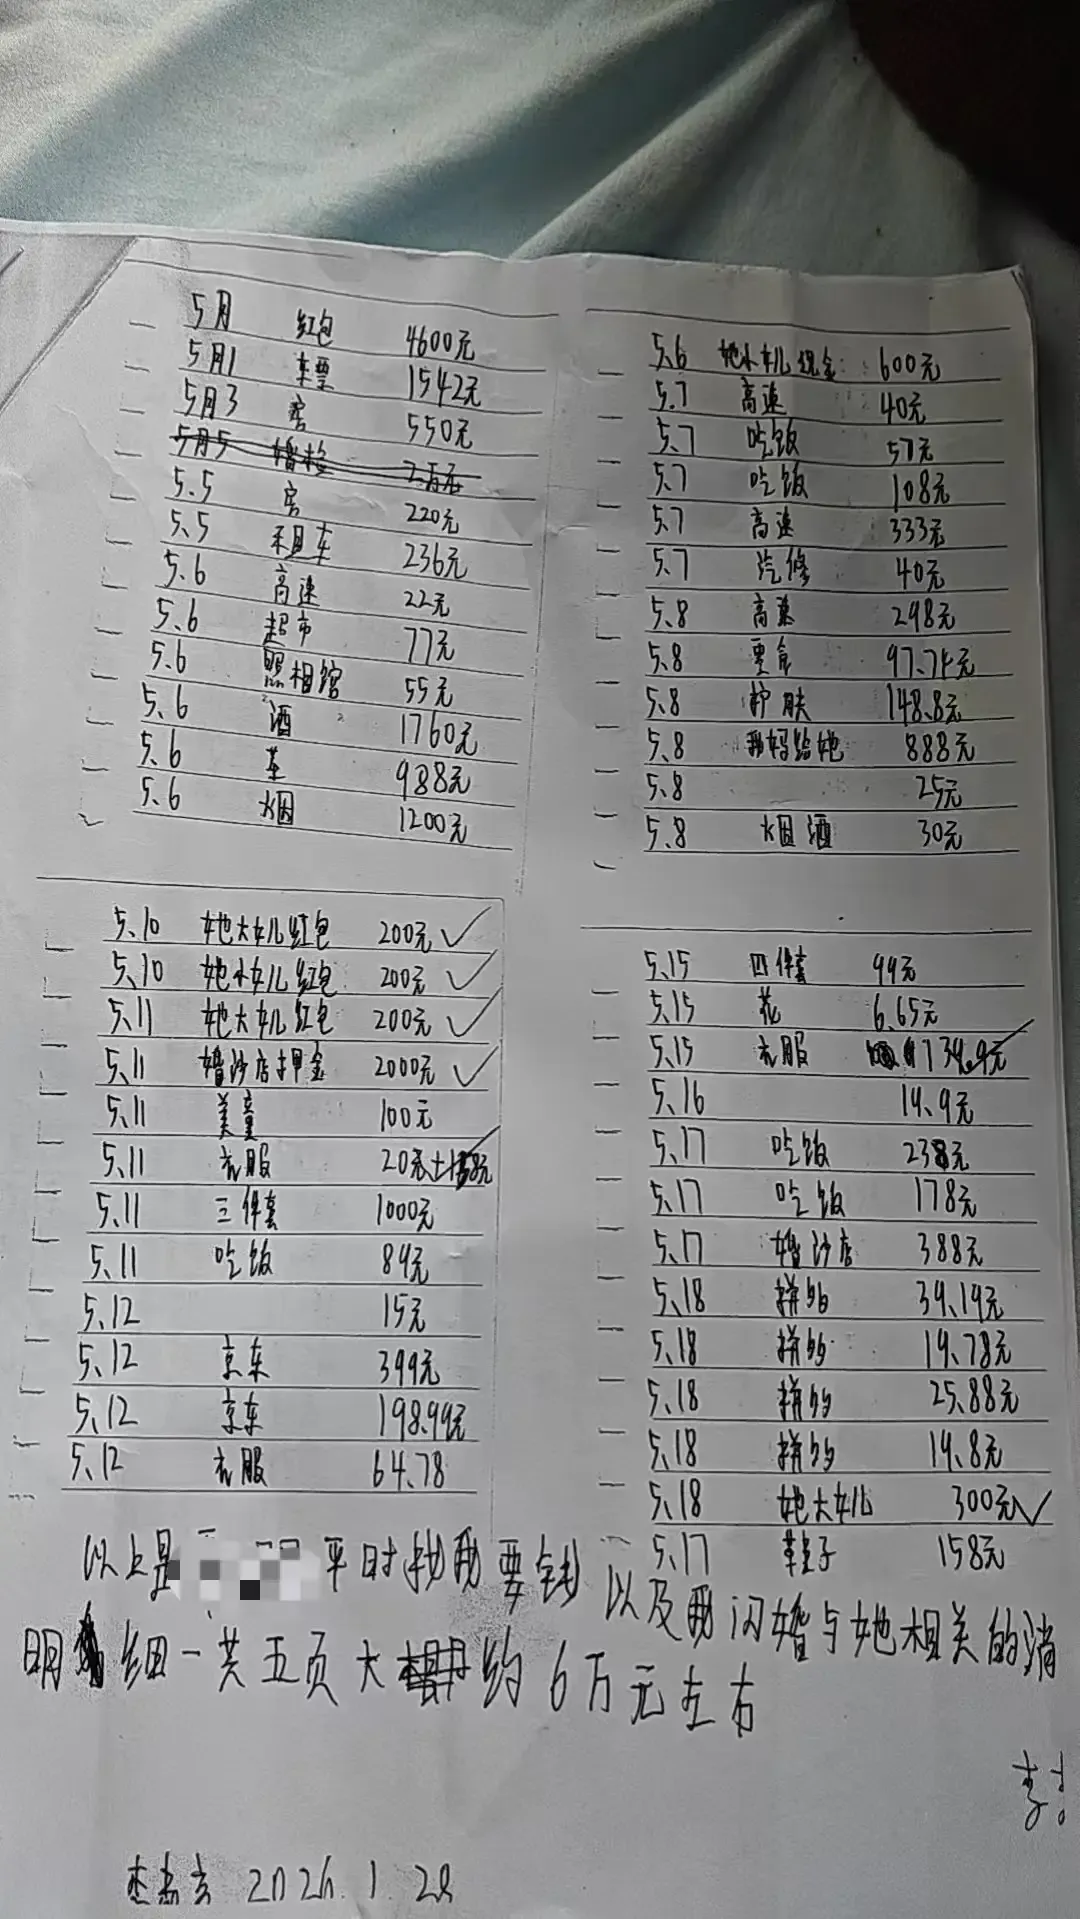 5月 红包 4600元
5月1 车票 1542元
5月3 房 550元
5月5 婚检 2万元
5.5 房 220元
5.5 租车 236元
5.6 高速 22元
5.6 超市 77元
5.6 照相馆 55元
5.6 酒 1760元
5.6 茶 988元
5.6 烟 1200元
5.6 她小女儿现金 600元
5.7 高速 40元
5.7 吃饭 57元
5.7 吃饭 108元
5.7 高速 333元
5.7 汽修 40元
5.8 高速 298元
5.8 零食 97.74元
5.8 护肤 148.8元
5.8 我妈给她 888元
5.8 25元
5.8 烟酒 30元
5.10 她大女儿红包 200元✓
5.10 她小女儿红包 200元✓
5.11 她大女儿红包 200元✓
5.11 婚沙店押金 2000元✓
5.11 美童 100元
5.11 衣服 20元
5.11 三件套 1000元
5.11 吃饭 84元
5.12 15元
5.12 京东 399元
5.12 京东 198.99元
5.12 衣服 64.78
5.15 四件套 99元
5.15 花 6.65元
5.15 衣服 134.9元
5.16 14.9元
5.17 吃饭 238元
5.17 吃饭 178元
5.17 婚沙店 388元
5.18 拼多 39.19元
5.18 拼多 19.78元
5.18 拼多 25.88元
5.18 拼多 14.8元
5.18 她大女儿 300元✓
5.17 鞋子 158元
以上是 平时找我要钱 以及我闪婚与她相关的消
明细一共五页大约6万元左右
李
2026.1.28